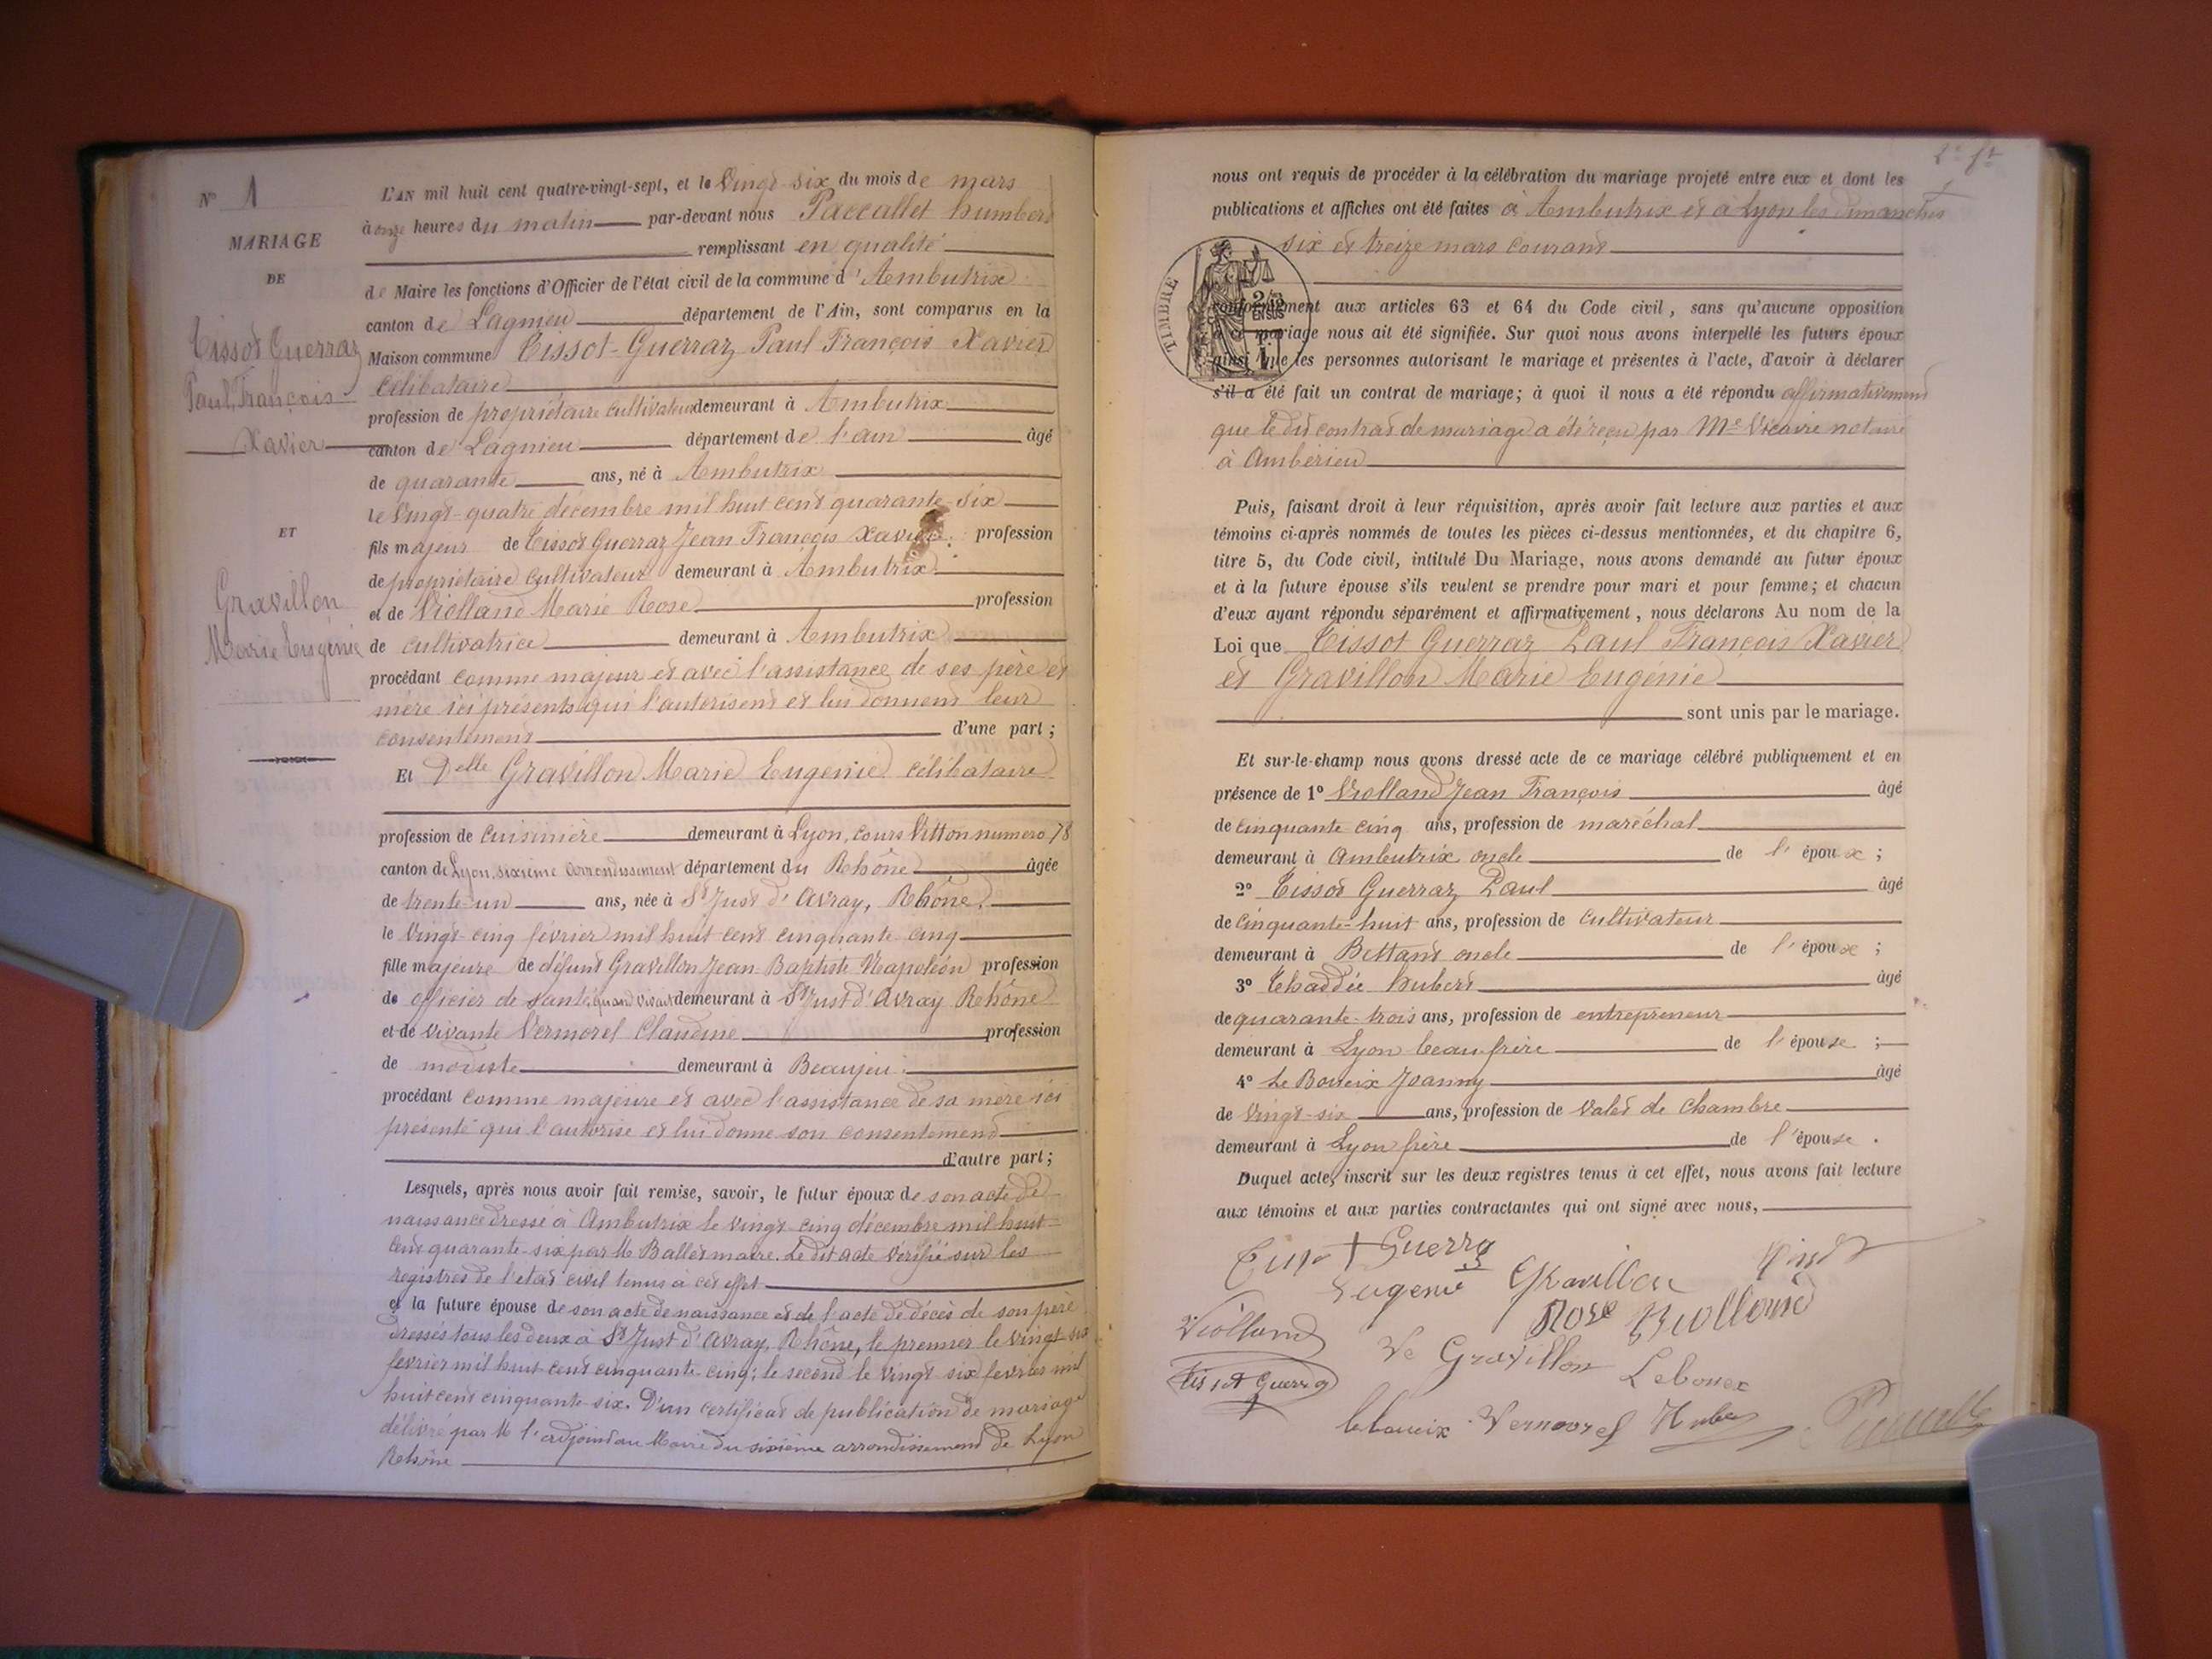 N° 1
MARIAGE
DE
Tissot Guerraz
Paul, François
Xavier
ET
Gravillon
Marie Eugénie
L'AN mil huit cent quatre-vingt-sept, et le Vingt-six du mois de mars
à onze heures du matin par-devant nous Paccallet humbert
remplissant en qualité
de Maire les fonctions d'Officier de l'état civil de la commune d'Ambutrix
canton de Lagnieu département de l'Ain, sont comparus en la
Maison commune Tissot-Guerraz Paul François Xavier
célibataire
profession de propriétaire cultivateur demeurant à Ambutrix
canton de Lagnieu département de l'ain âgé
de quarante ans, né à Ambutrix
le vingt-quatre décembre mil huit cent quarante-six
fils majeur de Tissot Guerraz Jean François Xavier profession
de propriétaire cultivateur demeurant à Ambutrix
et de Violland Marie Rose profession
de cultivatrice demeurant à Ambutrix
procédant comme majeur et avec l'assistance de ses père et
mère ici présents qui l'autorisent et lui donnent leur
consentement d'une part ;
Et Delle Gravillon Marie Eugénie célibataire
profession de cuisinière demeurant à Lyon, cours Vitton numero 78
canton de Lyon, sixième arrondissement département du Rhône âgée
de trente-un ans, née à St Just d'Avray, Rhône,
le vingt-cinq février mil huit cent cinquante cinq
fille majeure de défunt Gravillon Jean-Baptiste Napoléon profession
de officier de santé, quand vivait demeurant à St Just d'Avray Rhône
et de vivante Vermorel Claudine profession
de modiste demeurant à Beaujeu
procédant comme majeure et avec l'assistance de sa mère ici
présente qui l'autorise et lui donne son consentement
d'autre part ;
Lesquels, après nous avoir fait remise, savoir, le futur époux de son acte de
naissance dressé à Ambutrix le vingt-cinq décembre mil huit-
cent quarante-six par M Ballet maire. Le dit acte vérifié sur les
registres de l'état civil tenus à cet effet
et la future épouse de son acte de naissance et de l'acte de décès de son père
dressés tous les deux à St Just d'Avray, Rhône, le premier le vingt six
fevrier mil huit cent cinquante-cinq ; le second le vingt six fevrier mil
huit cent cinquante-six. D'un certificat de publication de mariage
délivré par M l'adjoint au Maire du sixième arrondissement de Lyon
Rhône
nous ont requis de procéder à la célébration du mariage projeté entre eux et dont les
publications et affiches ont été faites à Ambutrix et à Lyon les dimanches
six et treize mars courant
TIMBRE
conformément aux articles 63 et 64 du Code civil, sans qu'aucune opposition
à ce mariage nous ait été signifiée. Sur quoi nous avons interpellé les futurs époux
ainsi que les personnes autorisant le mariage et présentes à l'acte, d'avoir à déclarer
s'il a été fait un contrat de mariage ; à quoi il nous a été répondu affirmativement
que le dit contrat de mariage a été reçu par Me Vicaire notaire
à Ambérieu
Puis, faisant droit à leur réquisition, après avoir fait lecture aux parties et aux
témoins ci-après nommés de toutes les pièces ci-dessus mentionnées, et du chapitre 6,
titre 5, du Code civil, intitulé Du Mariage, nous avons demandé au futur époux
et à la future épouse s'ils veulent se prendre pour mari et pour femme ; et chacun
d'eux ayant répondu séparément et affirmativement, nous déclarons Au nom de la
Loi que Tissot Guerraz Paul François Xavier
et Gravillon Marie Eugénie
sont unis par le mariage.
Et sur-le-champ nous avons dressé acte de ce mariage célébré publiquement et en
présence de 1° Violland Jean François âgé
de cinquante cinq ans, profession de maréchal
demeurant à Ambutrix oncle de l'époux ;
2° Tissot Guerraz Paul âgé
de cinquante-huit ans, profession de cultivateur
demeurant à Bettant oncle de l'époux ;
3° Thaddée hubert âgé
de quarante-trois ans, profession de entrepreneur
demeurant à Lyon beau frère de l'épouse ;
4° Le Boueix Joanny âgé
de vingt-six ans, profession de valet de chambre
demeurant à Lyon frère de l'épouse .
Duquel acte, inscrit sur les deux registres tenus à cet effet, nous avons fait lecture
aux témoins et aux parties contractantes qui ont signé avec nous,
Guerra
Eugenie Gravillon
Rose Violland
Violland
Ve Gravillon
Tissot Guerra
Leboueix
Leboueix Vermorel